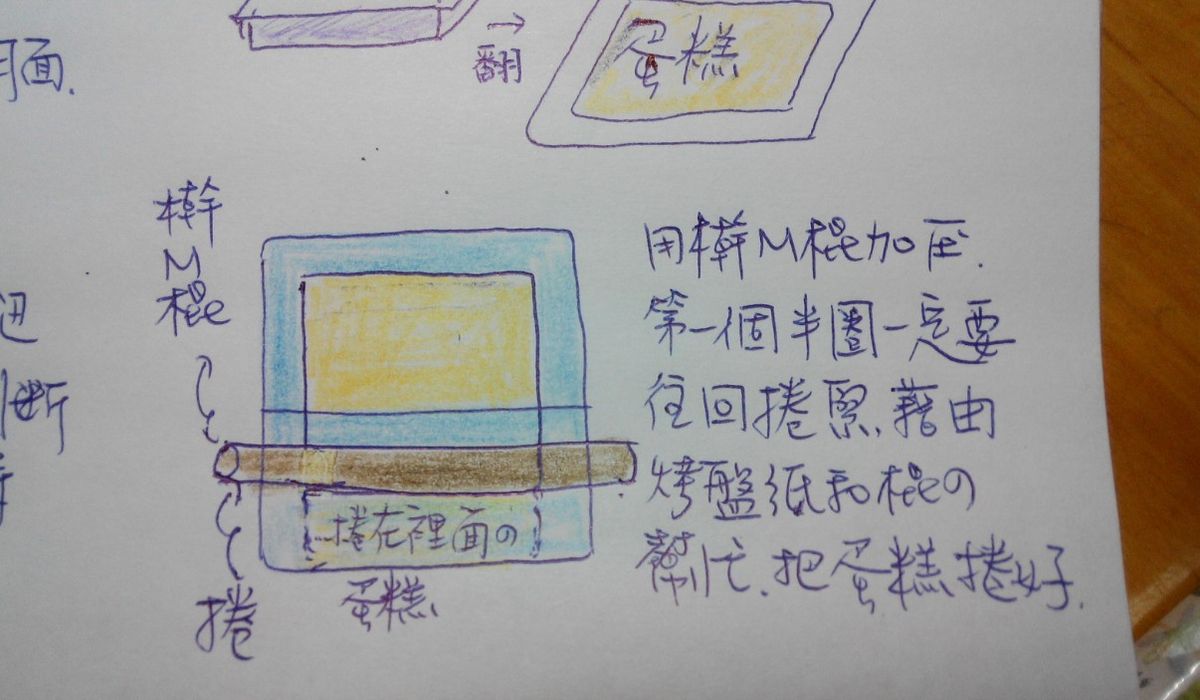 翻
蛋糕
面.
擀
M
棍
用擀M棍加压.
第一個半圈一定要
往回捲緊,藉由
烤盤紙和棍の
幫忙.把蛋糕捲好.
斷
捲在裡面の
蛋糕
捲